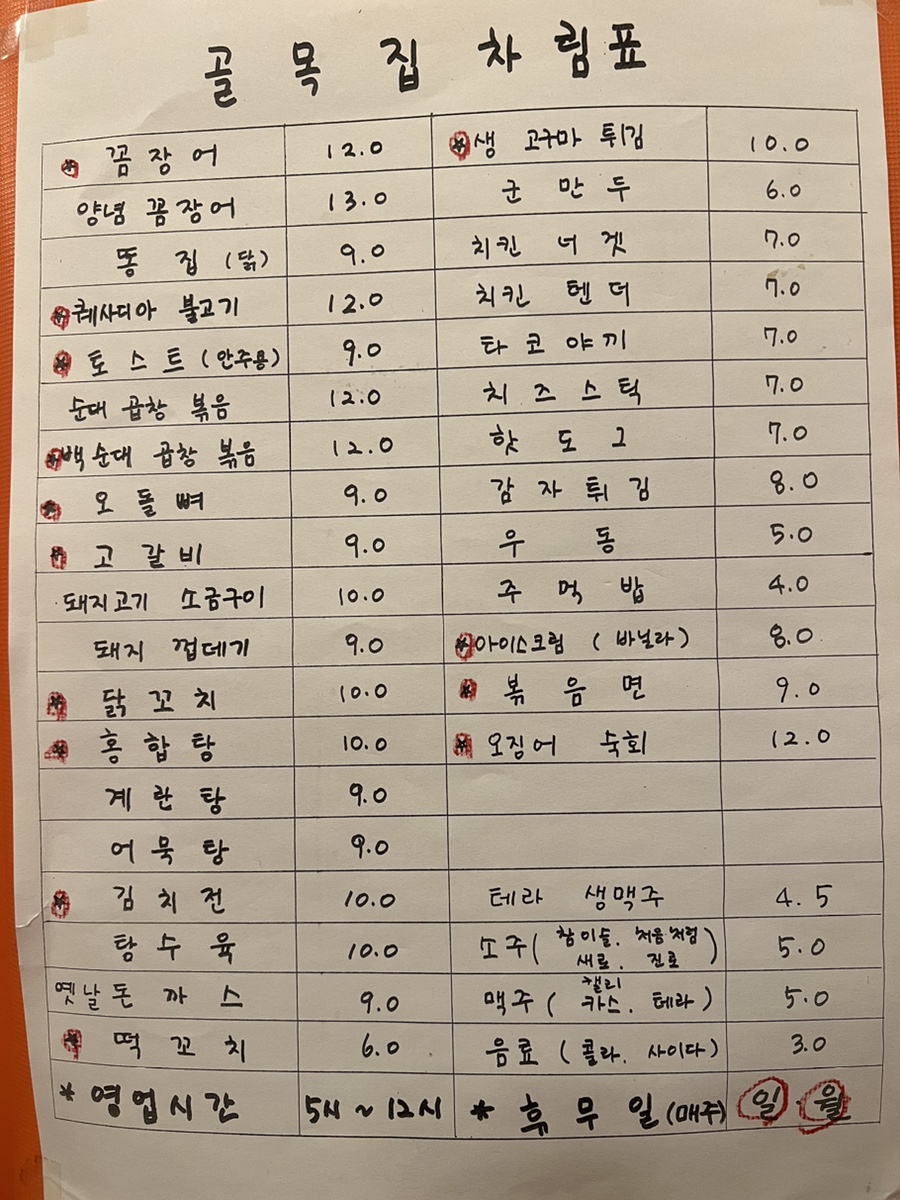 골목집 차림표
* 꼼장어 12.0 * 생 고구마 튀김 10.0
양념 꼼장어 13.0 군만두 6.0
똥집 (닭) 9.0 치킨 너겟 7.0
* 퀘사디아 불고기 12.0 치킨 텐더 7.0
* 토스트 (안주용) 9.0 타코야끼 7.0
순대 곱창 볶음 12.0 치즈스틱 7.0
* 백순대 곱창 볶음 12.0 핫도그 7.0
* 오돌뼈 9.0 감자튀김 8.0
* 고갈비 9.0 우동 5.0
돼지고기 소금구이 10.0 주먹밥 4.0
돼지 껍데기 9.0 * 아이스크림 (바닐라) 8.0
* 닭꼬치 10.0 * 볶음면 9.0
* 홍합탕 10.0 * 오징어 숙회 12.0
계란탕 9.0
어묵탕 9.0
* 김치전 10.0 테라 생맥주 4.5
탕수육 10.0 소주 (참이슬. 처음처럼 새로. 진로) 5.0
옛날돈까스 9.0 맥주 (켈리 카스. 테라) 5.0
* 떡꼬치 6.0 음료 (콜라. 사이다) 3.0
* 영업시간 5시 ~ 12시 * 휴무일 (매주) 일 월